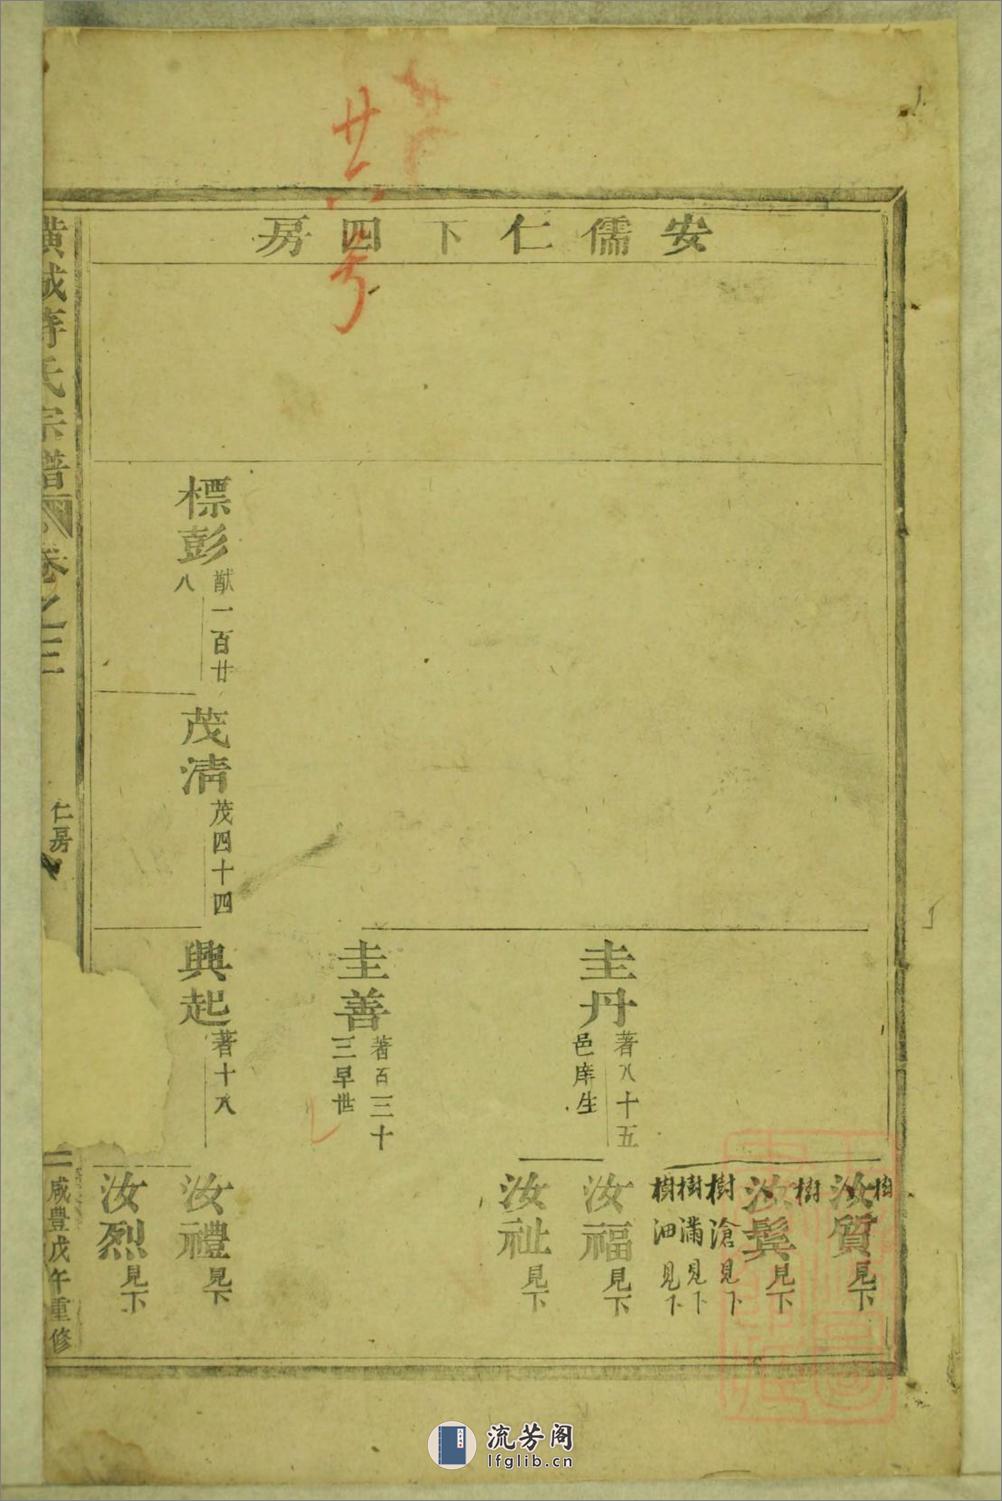 廿六号
安儒仁下四房
標彭
猷一百廿
八
茂清
茂四十四
圭丹
著八十五
邑庠生
圭善
著百三十
三早世
興起
著十八
樹
汝質見下
樹
汝鬂見下
樹滄見下
樹滿見下
樹洒見下
汝福見下
汝祉見下
汝禮見下
汝烈見下
氏宗譜
卷之三
仁房
二
咸豐戊午重修
流芳阁
lfglib.cn